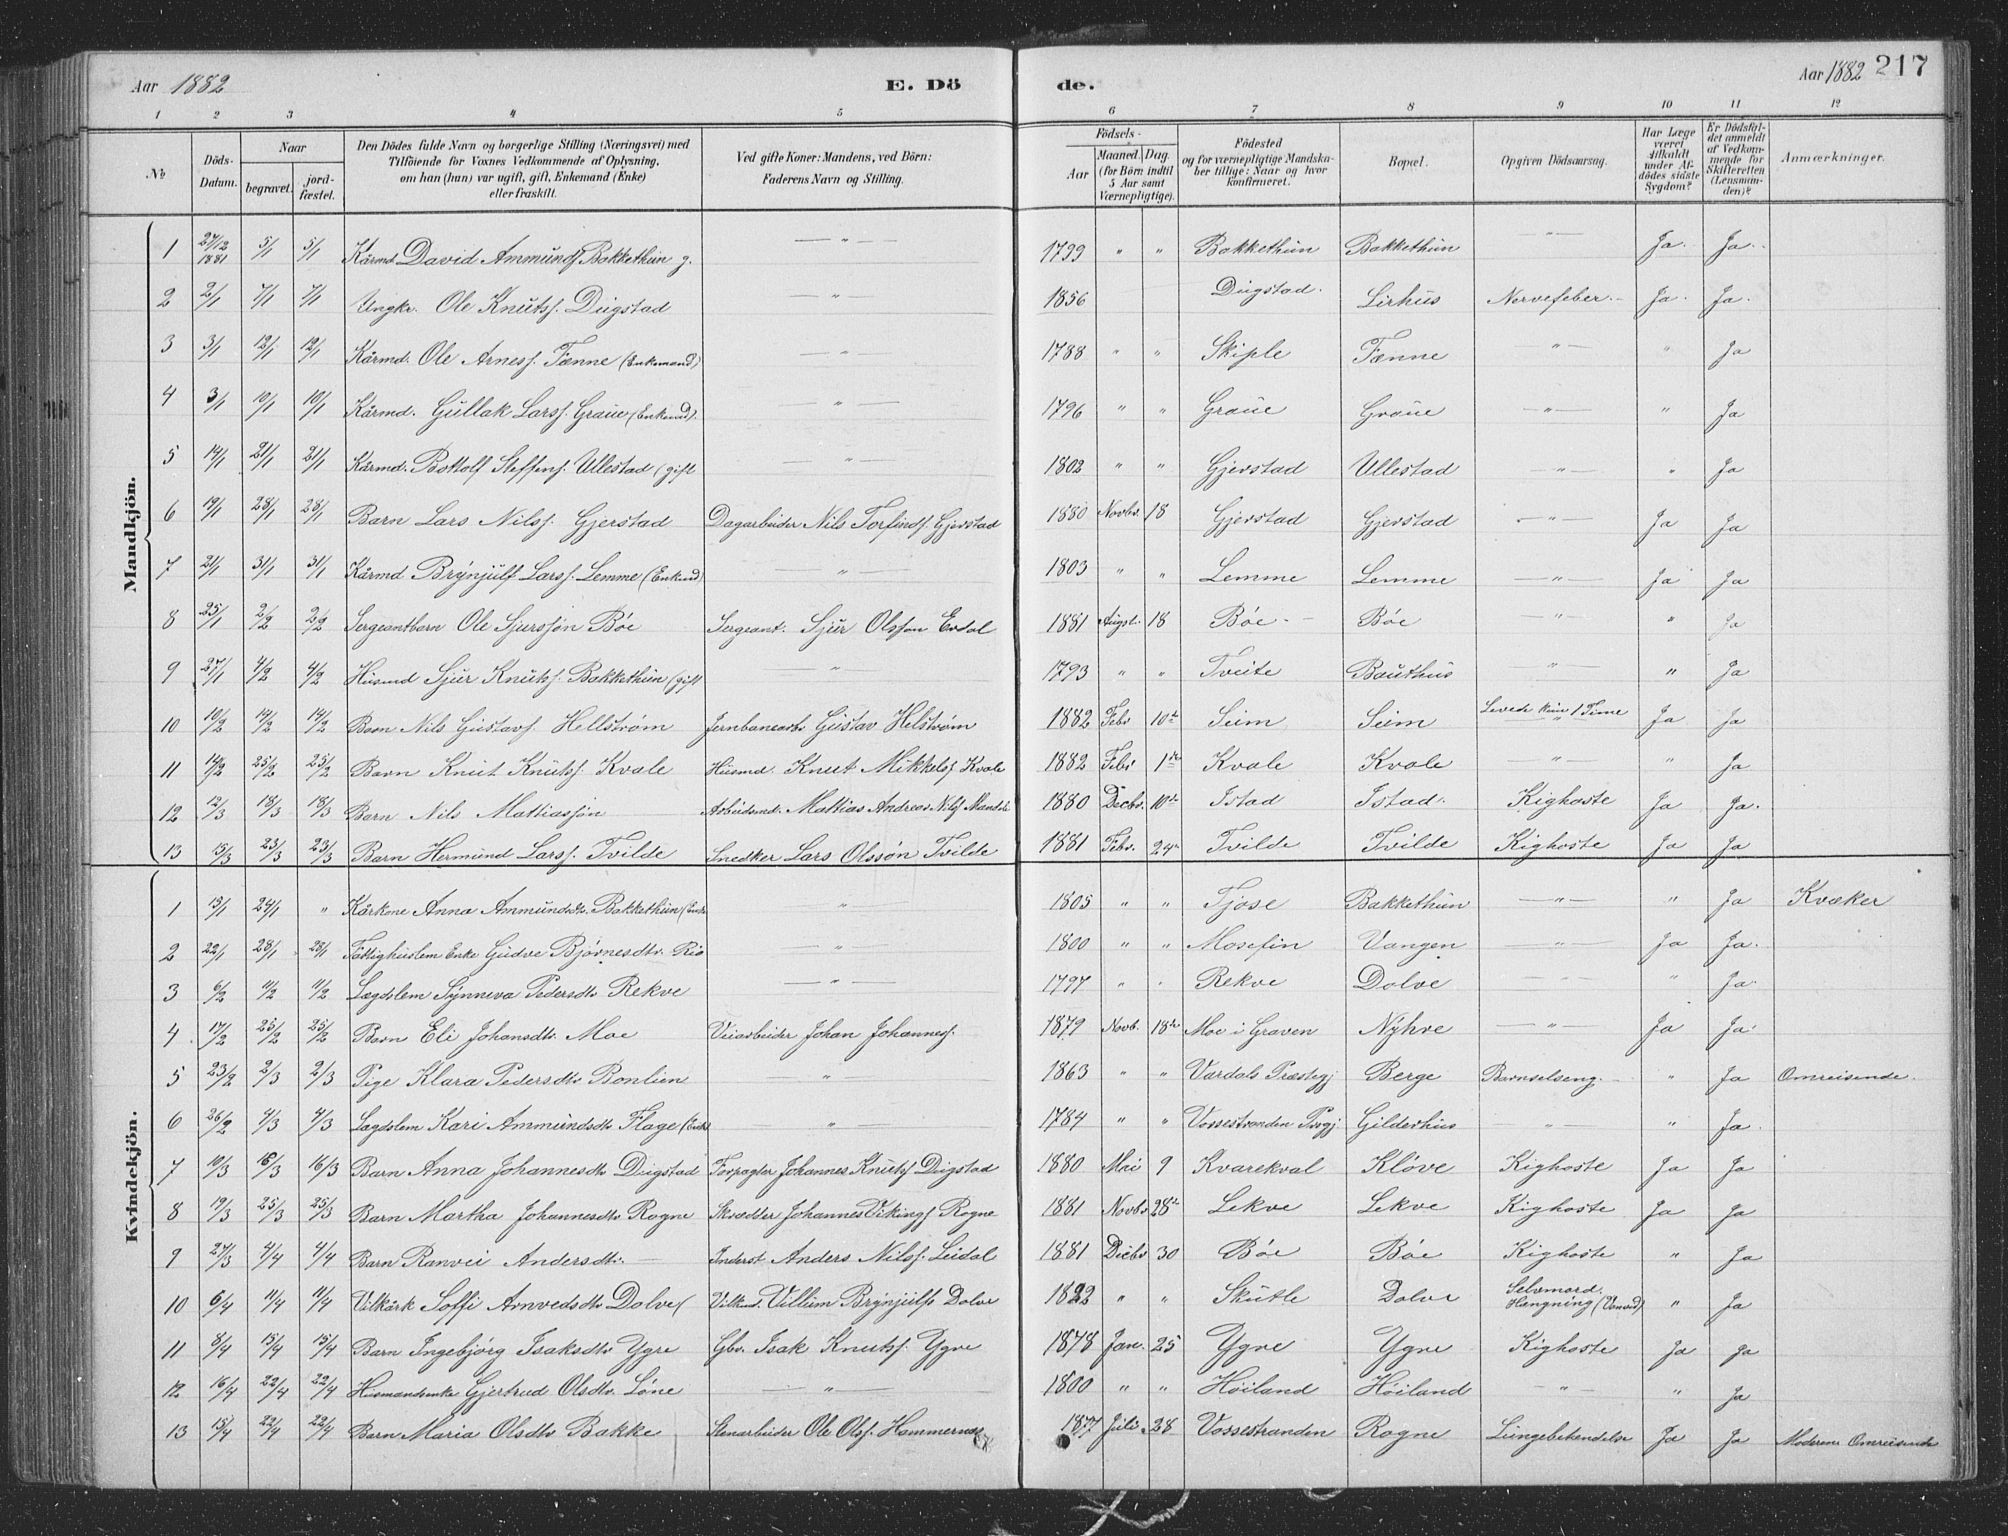 Aar 1882 E. Döde. Aar 1882 217
1 2 3 4 5 6 7 8 9 10 11 12
No Döds-Datum. Naar begravet. jordfæstet. Den Dödes fulde Navn og borgerlige Stilling (Næringsvei) med Tilföiende for Voxnes Vedkommende af Oplysning, om han (hun) var ugift, gift, Enkemand (Enke) eller fraskilt. Ved gifte Koner: Mandens, ved Börn: Faderens Navn og Stilling. Födsels- Aar Maaned. Dag. (for Börn indtil 5 Aar samt Værnepligtige). Födested og for værnepligtige Mandskaber tillige: Naar og hvor konfirmeret. Bopæl. Opgiven Dödsaarsag. Har Læge været tilkaldt under Afdödes sidste Sygdom? Er Dödsfaldet anmeldt af Vedkommende for Skifteretten (Lensmanden)? Anmærkninger.
Mandkjön.
1 27/12 1881 5/1 5/1 Kårmd. David Ammundsf. Bakkethun g. — " — 1799 " " Bakkethun Bakkethun — " — Ja. Ja.
2 2/1 7/1 7/1 Ungkr. Ole Knutsf. Dugstad — " — 1856 Dugstad. Lirhus Nervefeber. Ja. Ja.
3 3/1 12/1 12/1 Kårmd. Ole Arnesf. Fænne (Enkemand) — " — 1788 " " Skiple Fænne — " — " Ja
4 3/1 10/1 10/1 Kårmd. Gullak Larsf. Graue (Enkmd). — " — 1796 " " Graue Graue — " — " Ja
5 14/1 21/1 21/1 Kårmd. Bottolf Steffensf. Ullestad (gift — " — 1802 " " Gjerstad Ullestad — " — " Ja
6 19/1 28/1 28/1 Barn Lars Nilsf. Gjerstad Dagarbeider Nils Torfindsf. Gjerstad 1880 Novbr. 18 Gjerstad Gjerstad — " — Ja Ja
7 21/1 31/1 31/1 Kårmd Brynjulf Larsf. Lemme (Enkmd) — " — 1803 " " Lemme Lemme — " — Ja Ja
8 25/1 2/2 2/2 Sergeantbarn Ole Sjurssøn Bøe Sergeant. Sjur Olsson Erdal 1881 Augst. 18 Bøe Bøe — " — " Ja
9 27/1 4/2 4/2 Husmd Sjur Knutsf. Bakkethun (gift — " — 1793 " " Tveite Bauthus — " — " Ja
10 10/2 14/2 14/2 Barn Nils Gustavf. Hellstrøm Jernbanearb. Gustav Helstrøm 1882 Febr 10de Seim Seim Levede kun 1 Time Ja Ja
11 14/2 25/2 25/2 Barn Knut Knutsf. Kvale Husmd. Knut Mikkelsf. Kvale 1882 Febr 1ste Kvale Kvale — " — " Ja
12 12/3 18/3 18/3 Barn Nils Mathiassøn Arbeidsmd. Mathias Andreas Nilsf. 1880 Decbr. 10de Istad Istad. Kighoste Ja Ja.
13 15/3 23/3 23/3 Barn Hermund Larsf. Tvilde Snedker Lars Olssøn Tvilde 1881 Febr. 24 Tvilde Tvilde Kighoste Ja Ja
Kvindekjön.
1 13/1 24/1 " Kårkone Anna Ammundsdtr. Bakkethun " 1805 " " Tjøse Bakkethun — " — " Ja Kvæker
2 22/1 28/1 28/1 Fattighuslem Enke Gudve Bjørnesdtr. — " — 1800 " " Mosefin Vangen — " — Ja Ja.
3 6/2 11/2 11/2 Lægdslem Synneva Pedersdtr Rekve — " — 1797 " " Rekve Dolve " Ja.
4 17/2 25/2 25/2 Barn Eli Johansdtr. Moe Veiarbeider Johan Johannesf. 1879 Novb. 18de Moe i Graven Nyhve — " — Ja Ja.
5 23/2 2/3 2/3 Pige Klara Pedersdtr Bonlien " 1863 " " Vardals Præstegj. Berge Barnselseng. " Ja Omreisende.
6 26/2 4/3 4/3 Lægdslem Kari Ammundsdtr Flage (Enke) " 1784 " " Vossestranden Prgj. Gilderhus — " — " Ja.
7 10/3 16/3 16/3 Barn Anna Johannesdtr Dugstad Forpagter Johannes Knutsf. Dugstad 1880 Mai 9 Kvarekval Kløve Kighoste Ja Ja
8 19/3 25/3 25/3 Barn Martha Johannesdtr Rogne Skrædder Johannes Vikingsf. Rogne 1881 Novbr 28de Lekve Lekve Kighoste Ja Ja
9 27/3 4/4 4/4 Barn Ranvei Andersdtr. Inderst Anders Nilsf. Leidal 1881 Decbr 30 Bøe Bøe Kighoste " Ja
10 6/4 11/4 11/4 Vilkårk Soffi Arnvedsdtr Dolve ( Vilkmd. Villum Brynjulfs Dolve 1822 " " Skutle Dolve Selvmord. Hængning (Vanvid) " Ja
11 8/4 15/4 15/4 Barn Ingebjørg Isaksdtr Ygre Gbr. Isak Knutsf. Ygre 1878 Jan. 25 Ygre Ygre Kighoste Ja Ja
12 16/4 22/4 22/4 Husmandsenke Gjertrud Olsdtr. Løne — " — 1800 " " Høiland Høiland — " — " Ja
13 15/4 22/4 22/4 Barn Maria Olsdtr Bakke Stenarbeider Ole Olsf. Hammernes 1877 Juli 28 Vossestranden Rogne Lungebetendelse Ja Ja Moderen Omreisende